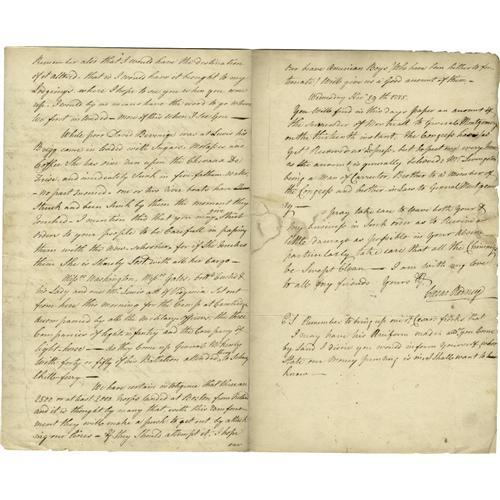 Remember also that I would have the destination
of it altered. that is I would have it brought to my
Lodgings. where I hope to see you when you come
up. I would by no means have the wood to go where
we first intended — more of this when I see you —
While poor David Beveridge was at Lewis his
Brig came in loaded with Sugar, Molasses and
Coffee. She has since run upon the Chevaux De
Frise, and suddenly Sunk in four fathom water
— No part insured. one or two river boats have
Struck and been Sunk by them the moment they
touched. I mention this that you may give Strict
orders to your people to be Careful in passing
them with the new Subscriber, for if She touches
them She is Shurely lost with all her Cargo —
Mrs. Washington, Mrs. Gates, Coll. Custis &
his Lady, and one Mr. Lewis all of Virginia Set out
from here this morning for the Camp at Cambridge
Accompanied by all the Military officers, the three
Companies of light infantry and the Company of
light horse — As they came up General
with forty or fifty of his Battalion attended to Schuy-
lkill-ferry —
We have certain intelligence that there are
2500 or at least 2000 troops landed at Boston from Britain
and it is thought by many that with this reinforce-
ment they will make a push to get out by attack
ing our lines — If they Should attempt it, I hope
our
Our brave American Boys, Who have been hitherto for-
tunate) Will give us a good account of them —
Wednesday Nov. 29th 1775.
You will find in this days paper an account of
the surrender of Montreal to General Montgomery
on the thirteenth instant. The Congress have not
yet received an Express. but he past every
as the account is generally believed Mr. Livingston
being a Man of Caracter, Brother to a member of
the Congress and brother-in-Law to General Montgom-
ery —
pray take care to leave both your &
my business in Such order as to Receive as
little damage as possible in your absence
particularly take care that all the Chimneys
be Swept Clean — I am with my love
to all my friends Yours &c
Caesar Rodney
P.S. Remember to bring up one of Caesar's frocks that
I may have his Uniform made. as you Come
by Land I desire you would inform yourself of what
State our money printing is in. I shall want to
know —